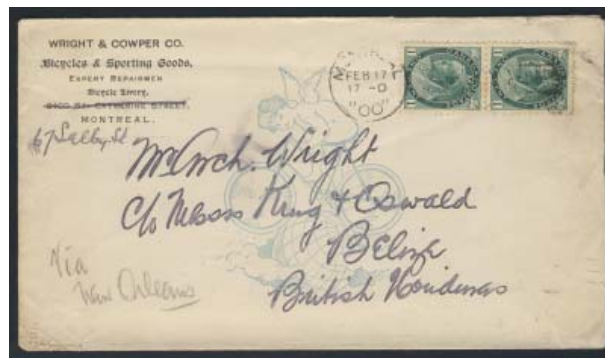 WRIGHT & COWPER CO.
Bicycles & Sporting Goods.
EXPERT REPAIRMEN
Bicycle Livery.
CATHERINE STREET.
MONTREAL.
67 Selby St
FEB 17
17-0
"00"
Mr Arch. Wright
c/o Messrs King & Oswald
Belize
British Honduras
Via
New Orleans